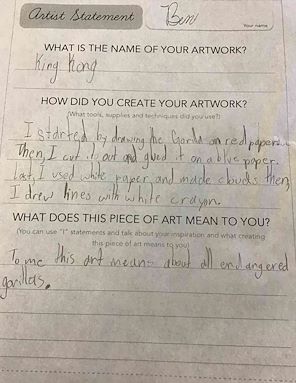 Artist Statement
Ben
Your name
WHAT IS THE NAME OF YOUR ARTWORK?
King Kong
HOW DID YOU CREATE YOUR ARTWORK?
(What tools, supplies and techniques did you use?)
I started by drawing the Gorilla on red paper.
Then, I cut it out and glued it on a blue paper.
Last, I used white paper and made clouds then
I drew lines with white crayon.
WHAT DOES THIS PIECE OF ART MEAN TO YOU?
(You can use "I" statements and talk about your inspiration and what creating
this piece of art means to you)
To me this art means about all endangered
gorillas.